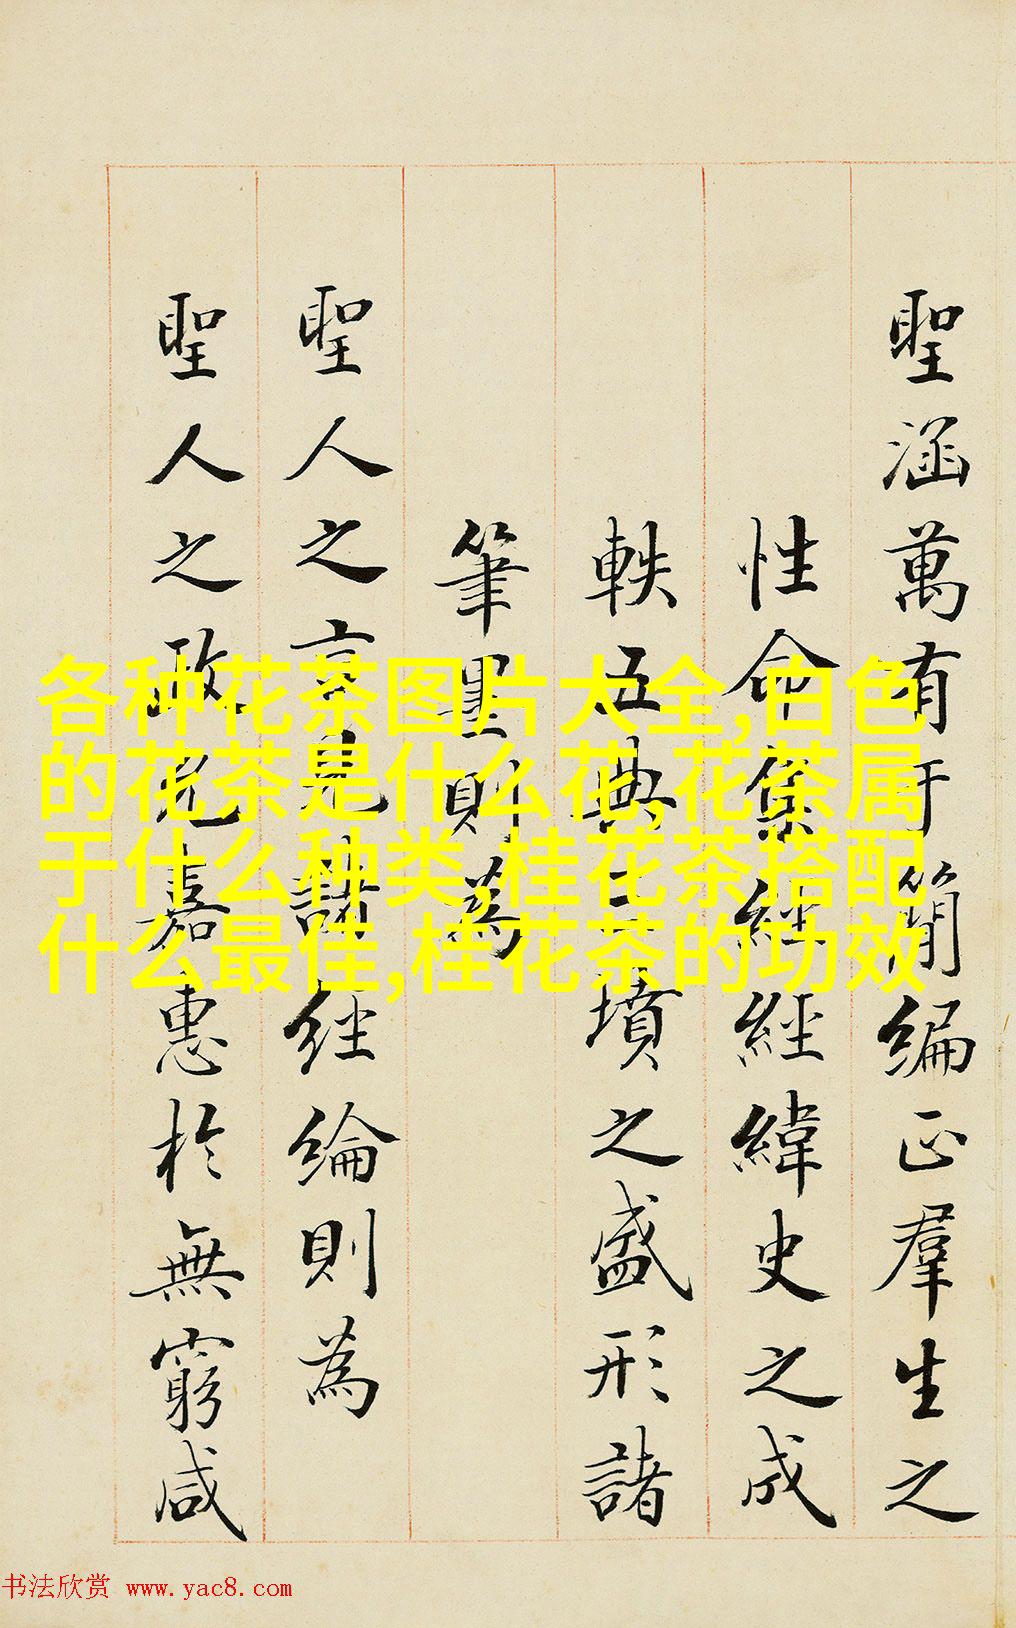 各种花茶图片大全,白色
的花茶是什么花,花茶属
于什么种类,桂花茶搭配
什么最佳,桂花茶的功效
聖涵萬有于簡編正羣生之
性命經經緯史之成
軼五典三墳之盛形諸
筆墨則為
聖人之言見諸經綸則為
聖人之政嘉惠於無窮咸
书法欣赏 www.yac8.com